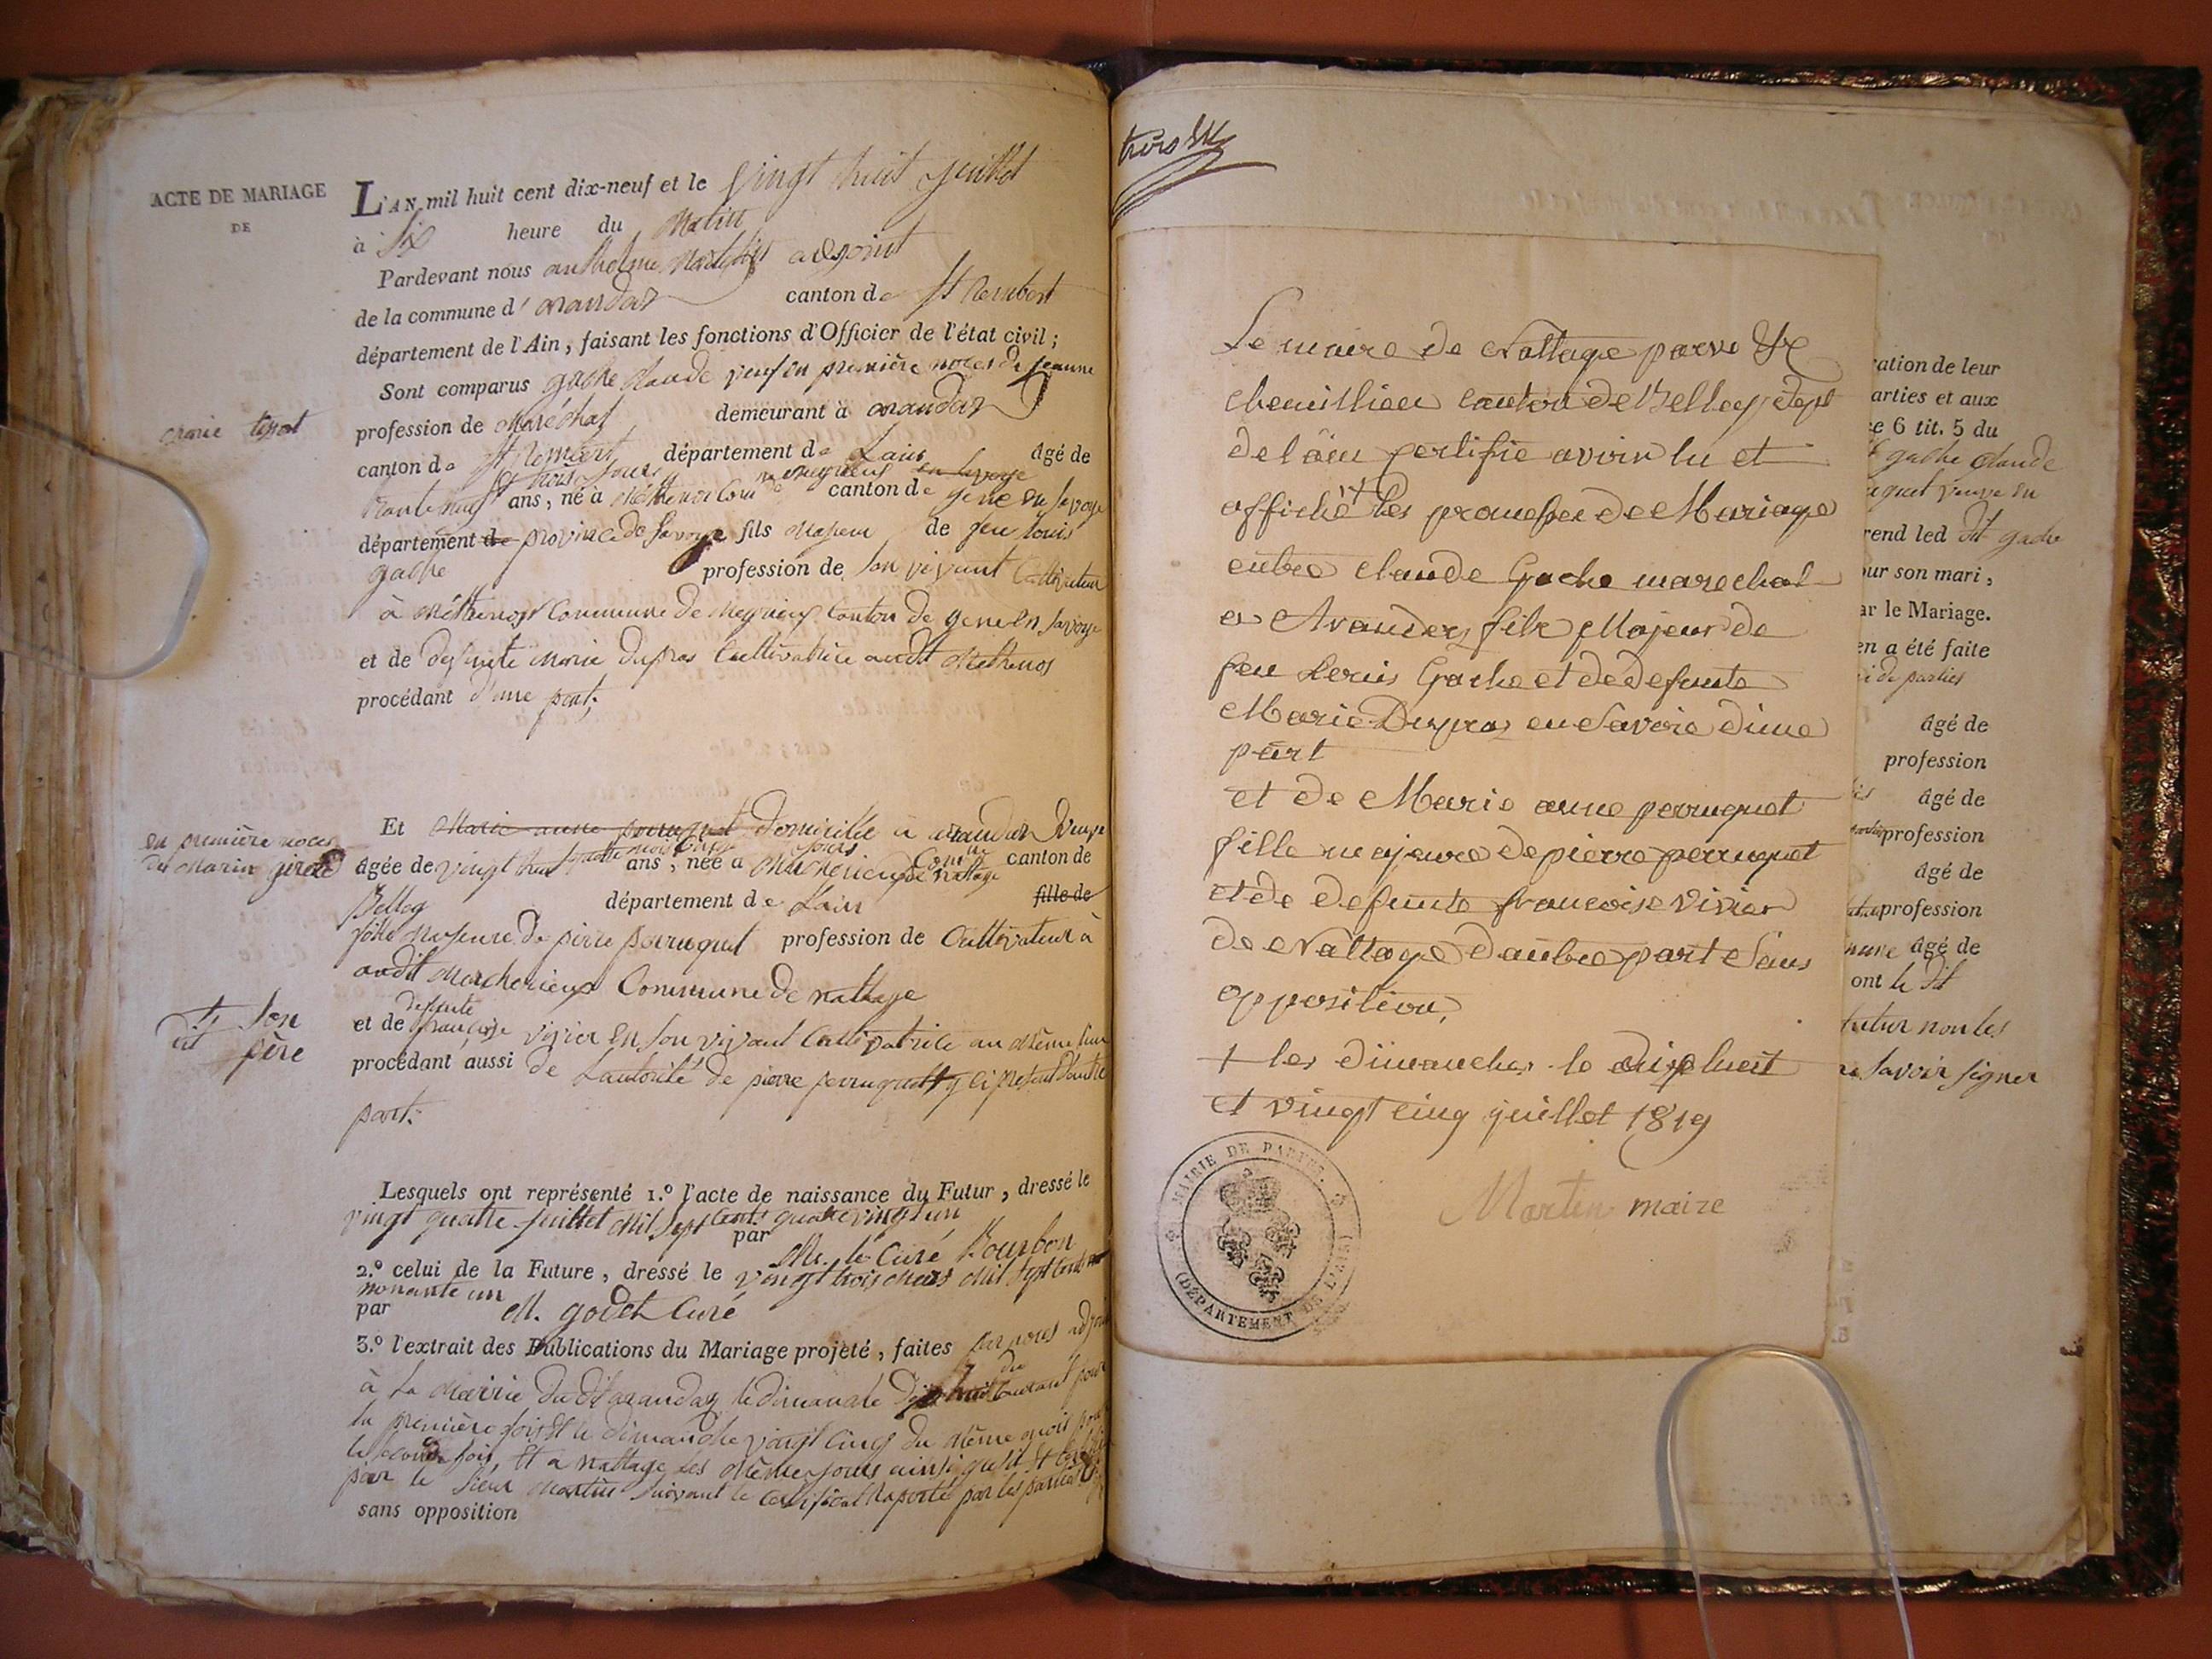 ACTE DE MARIAGE
DE
L'AN mil huit cent dix-neuf et le vingt huit juillet
à six heure du matin
Pardevant nous anthelme adjoint
de la commune d' arandas canton de St Rembert
département de l'Ain, faisant les fonctions d'Officier de l'état civil;
Sont comparus gache claude veuf en première noces de jeanne
marie tissot
profession de maréchal demeurant à arandas
canton de St Rembert département de Lain âgé de
trente huit et trois jours ans, né à canton de en savoye
département de province de Savoye fils majeur de feu louis
gache profession de son vivant Cultivateur
à Commune de Canton de en Savoye
et de defunte marie dupras Cultivatrice audit
procédant d'une part;
Et Marie anne perruquet domiciliée à arandas veuve
en première noces
de marin
âgée de vingt huit quatre mois ans, née à Comune de nattage canton de
Belley département de Lain fille de
fille majeure de pierre perruquet profession de Cultivateur à
audit Commune de nattage
et de defunte françoise vivier en son vivant Cultivatrice au même lieu
procédant aussi de Lautorité de pierre perruquet ci présent d'autre
son
dit père
part.
Lesquels ont représenté 1.º l'acte de naissance du Futur, dressé le
vingt quatre juillet mil sept cent quatre vingt un
par Mr. le Curé Bourbon
2.º celui de la Future, dressé le vingt trois mars mil sept cent
nonante un
par M. godet Curé
3.º l'extrait des Publications du Mariage projeté, faites par nous adjoint
à la mairie du dit arandas le dimanche dix huit du Courant pour
la première fois et le dimanche vingt cinq du même mois pour
la seconde fois, et a nattage les mêmes jours ainsi
par le Sieur martin suivant le certificat raporté par les parties
sans opposition
trois
Le maire de Nattage parve &
chemillieu canton de Belley dept
de lain certifie avoir lu et
affiché + les promesse de Mariage
entre claude Gache marechal
a Arandas fils Majeur de
feu Louis Gache et de defunte
Marie Dupras en Savoie dune
part
et de Marie anne perruquet
fille majeure de pierre perruquet
et de defunte francoise vivier
de Nattage dautre part sans
opposition,
+ les dimanches le dix huit
et vingt cinq juillet 1819
Martin maire
MAIRIE DE PARVES.
(DÉPARTEMENT DE L'AIN)
ration de leur
arties et aux
e 6 tit. 5 du
gache claude
quet veuve en
rend led dit gache
our son mari,
ar le Mariage.
en a été faite
de parties
âgé de
profession
âgé de
profession
âgé de
profession
âgé de
ont le dit
futur non les
ne savoir signer